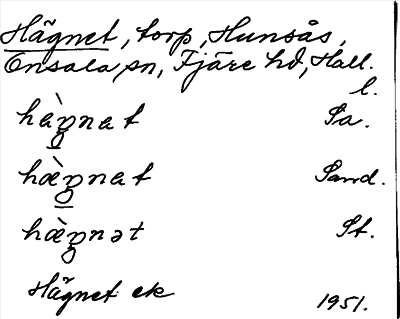 Hägnet, torp, Hunsås,
Onsala sn, Fjäre hd, Hall.
l.
hèŋnat Sa.
hæ̀ŋnat Sand.
hæ̀ŋnət St.
Hägnet ek
1951.